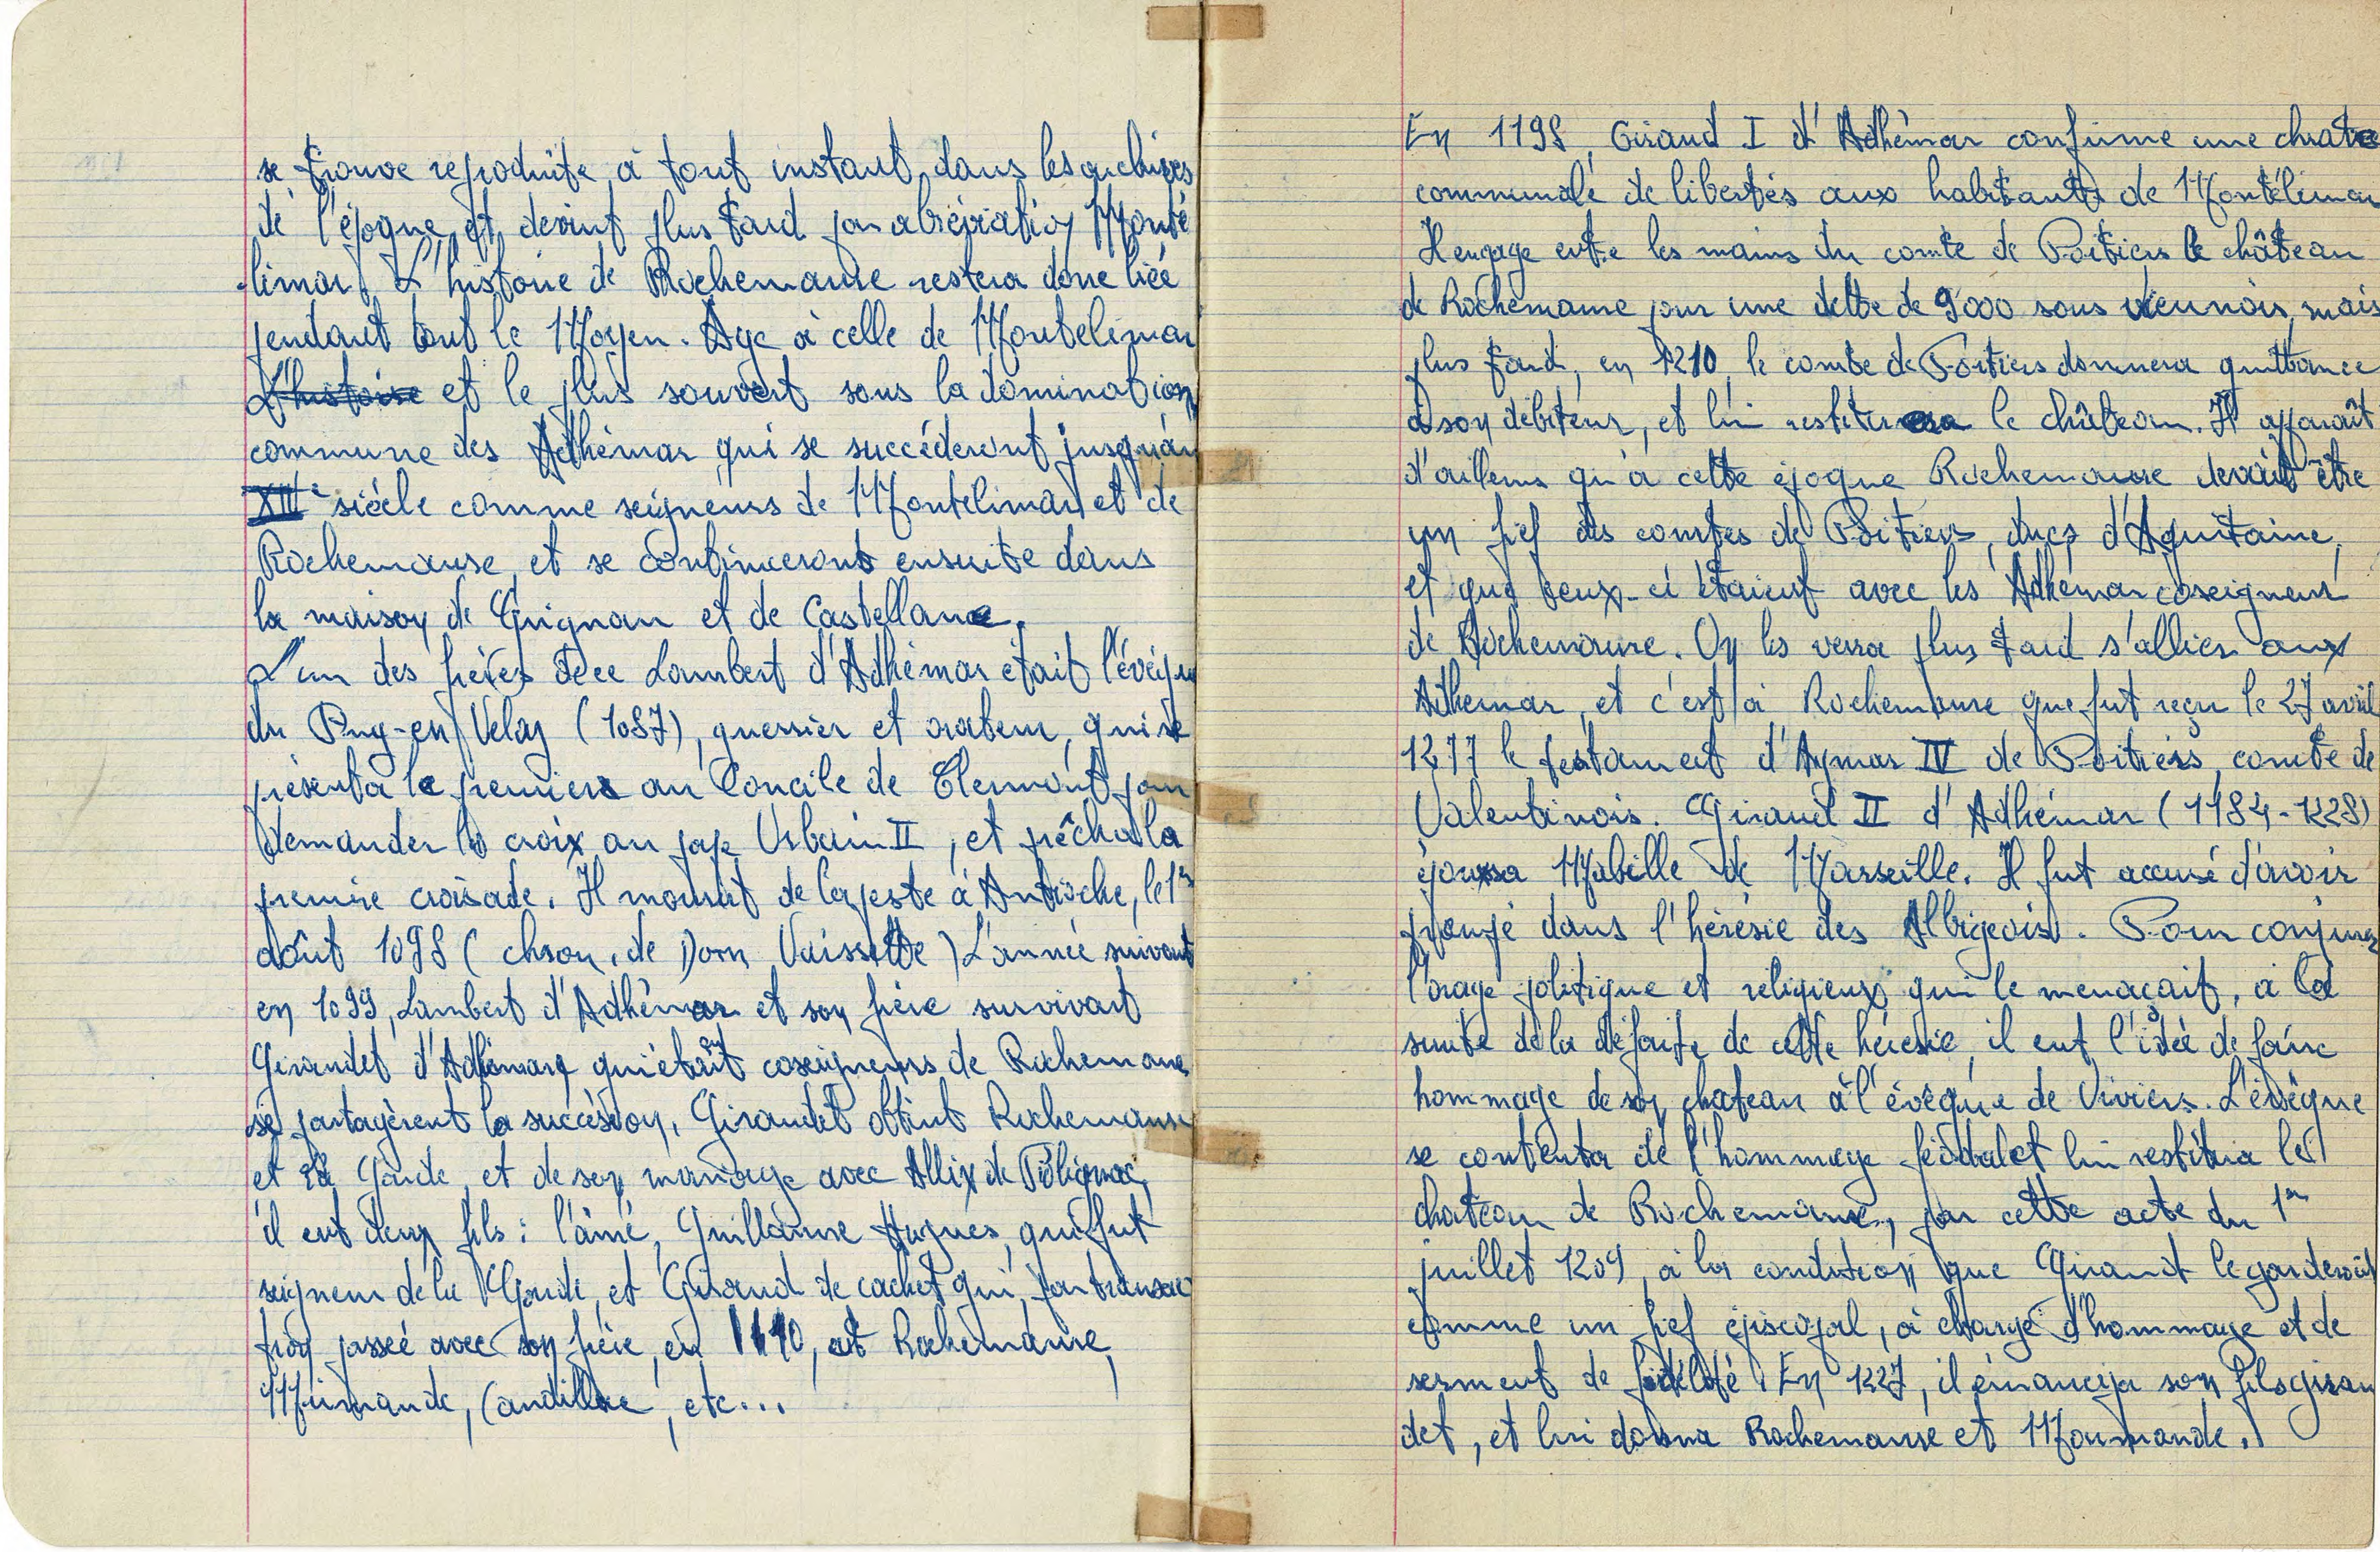 se trouve reproduite à tout instant dans les archives
de l'époque et devint plus tard par abréviation Monté
-limar. L'histoire de Rochemaure restera donc liée
pendant tout le Moyen-Age à celle de Montelimar
L'histoire et le plus souvent sous la domination
commune des Adhémar qui se succéderont jusqu'au
XIIIe siècle comme seigneurs de Montelimar et de
Rochemaure, et se continueront ensuite dans
la maison de Grignan et de Castellane.
L'un des frères de ce Lambert d'Adhémar était l'évêque
du Puy-en Velay (1087), guerrier et orateur, qui se
présenta le premier au Concile de Clermont pour
demander la croix au pape Urbain II, et prêcha la
premire croisade. Il mourut de la peste à Antioche, le 1er
août 1098 (chron. de Dom Vaissette) L'année suivant
en 1099, Lambert d'Adhémar et son frère survivant
Giraudet d'Adhémar qui était coseigneurs de Rochemaure
se partagèrent la succession, Giraudet obtint Rochemaure
et la Garde, et de son mariage avec Allix de Polignac,
il eut deux fils : l'aîné, Guillaume Hugues, qui fut
seigneur de la Garde, et Giraud de cachet qui, par transac
tion passée avec son frère, en 1140, eut Rochemaure,
Mirmande, Candillac, etc...
En 1198, Giraud I d'Adhémar confirme une chrate
communale de libertés aux habitants de Montélimar
Il engage entre les mains du comte de Poitiers le château
de Rochemaure pour une dette de 9000 sous viennois, mais
plus tard, en 1210, le comte de Poitiers donnera quittance
à son débiteur, et lui restituera le château. Il apparaît
d'ailleurs qu'à cette époque Rochemaure devait être
un fief des comtes de Poitiers, ducs d'Aquitaine,
et que ceux-ci étaient avec les Adhémar coseigneurs
de Rochemaure. On les verra plus tard s'allier aux
Adhémar, et c'est à Rochemaure que fut reçu le 27 avril
1277 le testament d'Aymar IV de Poitiers, comte de
Valentinois. Giraud II d'Adhémar (1184-1228)
épousa Mabille de Marseille. Il fut accusé d'avoir
trempé dans l'hérésie des Albigeois. Pour conjurer
l'orage politique et religieux qui le menaçait, à la
suite de la défaite de cette hérésie, il eut l'idée de faire
hommage de son chateau à l'évêque de Viviers. L'évêque
se contenta de l'hommage féodal et lui restitua le
chateau de Rochemaure, par cette acte du 1er
juillet 1209, à la condition que Giraud le garderait
comme un fief épiscopal, à charge d'hommage et de
serment de fidélité. En 1227, il émancipa son fils girau
det, et lui donna Rochemaure et Mourmande.